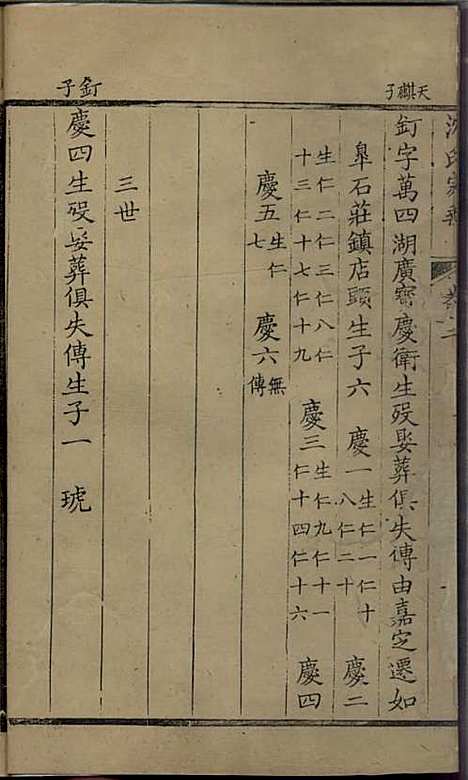 天麒子
釘字萬四湖廣寶慶衛生殁娶葬俱失傳由嘉定遷如
皐石莊鎮店頭生子六　慶一生仁一仁十八仁二十　慶二
生仁二仁三仁八仁十三仁十七仁十九　慶三生仁九仁十一仁十四仁十六　慶四
慶五生仁七　慶六無傳
三世
釘子
慶四生殁娶葬俱失傳生子一　琥